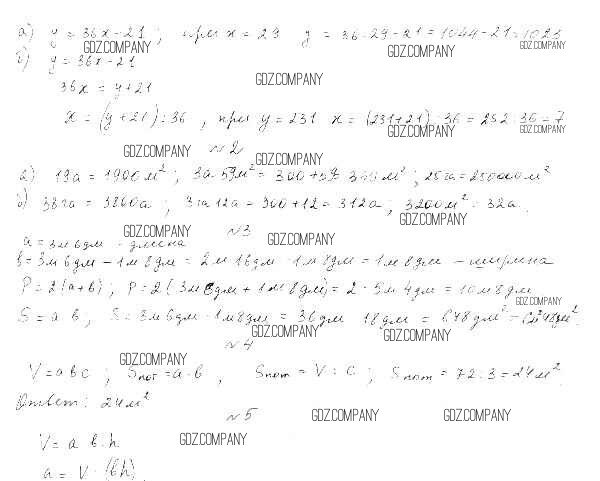 а) y = 36x - 21 ; при x = 29 y = 36·29 - 21 = 1044 - 21 = 1023
GDZ.COMPANY GDZ.COMPANY GDZ.COMPANY
б) y = 36x - 21
GDZ.COMPANY
36x = y + 21
x = (y + 21) : 36 , при y = 231 x = (231 + 21) : 36 = 252 : 36 = 7
GDZ.COMPANY GDZ.COMPANY
№2
GDZ.COMPANY GDZ.COMPANY
а) 19а = 1900м² ; 3а 59м² = 300 + 59 = 359м² ; 25га = 250000м²
б) 38га = 3800а ; 3га 12а = 300 + 12 = 312а ; 3200м² = 32а.
GDZ.COMPANY
№3
GDZ.COMPANY GDZ.COMPANY
a = 3м 6дм - длина
b = 3м 6дм - 1м 8дм = 2м 16дм - 1м 8дм = 1м 8дм - ширина
P = 2(a+b) ; P = 2(3м 6дм + 1м 8дм) = 2 · 5м 4дм = 10м 8дм
GDZ.COMPANY
S = a b ; S = 3м 6дм · 1м 8дм = 36дм 18дм = 648дм² =
GDZ.COMPANY GDZ.COMPANY
№4
GDZ.COMPANY
V = a b c ; Sпот = a · b , Sпот = V : c ; Sпот = 72 : 3 = 24м²
Ответ: 24м²
№5
GDZ.COMPANY GDZ.COMPANY
V = a b h
GDZ.COMPANY
a = V : (b h)